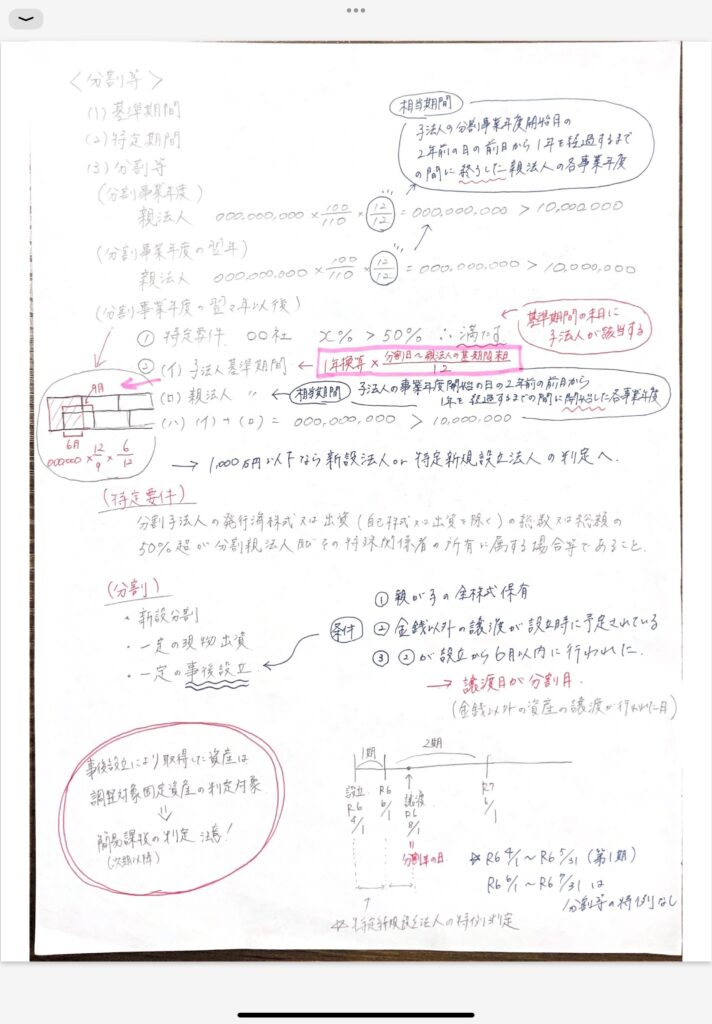 <分割等>
(1) 基準期間
(2) 特定期間
(3) 分割等
相当期間
子法人の分割事業年度開始日の
2年前の日の前日から1年を経過するまで
の間に終了した親法人の各事業年度
(分割事業年度)
親法人 000,000,000 × 100/110 × 12/12 = 000,000,000 > 10,000,000
(分割事業年度の翌年)
親法人 000,000,000 × 100/110 × 12/12 = 000,000,000 > 10,000,000
(分割事業年度の翌々年以後)
① 特定要件 〇〇社 x% > 50% ∴ 満たす
基準期間の末日に
子法人が該当する
② (イ) 子法人基準期間 ← 1年換算 × 分割日〜親法人の基準期間末/12
(ロ) 親法人 〃 ← 相当期間 子法人の事業年度開始の日の2年前の前日から
1年を経過するまでの間に開始した各事業年度
(ハ) (イ)+(ロ) = 000,000,000 > 10,000,000
9月
6月
000000 × 12/9 × 6/12
→ 1,000万円以下なら新設法人or特定新規設立法人の判定へ.
(特定要件)
分割子法人の発行済株式又は出資(自己株式又は出資を除く)の総数又は総額の
50%超が分割親法人及びその特殊関係者の所有に属する場合等であること.
(分割)
・新設分割
・一定の現物出資
・一定の事後設立
条件
① 親が子の全株式保有
② 金銭以外の譲渡が設立時に予定されている
③ ②が設立から6月以内に行われた.
→ 譲渡日が分割日.
(金銭以外の資産の譲渡が行われた日)
事後設立により取得した資産は
調整対象固定資産の判定対象
⇓
簡易課税の判定 注意!
(次期以降)
1期 2期
設立 R6 4/1
R6 6/1
譲渡 R6 8/1
R7 6/1
分割等の日
☆ R6 4/1〜R6 5/31 (第1期)
R6 6/1〜R6 7/31 は
分割等の特例なし
☆ 特定新規設立法人の特例判定